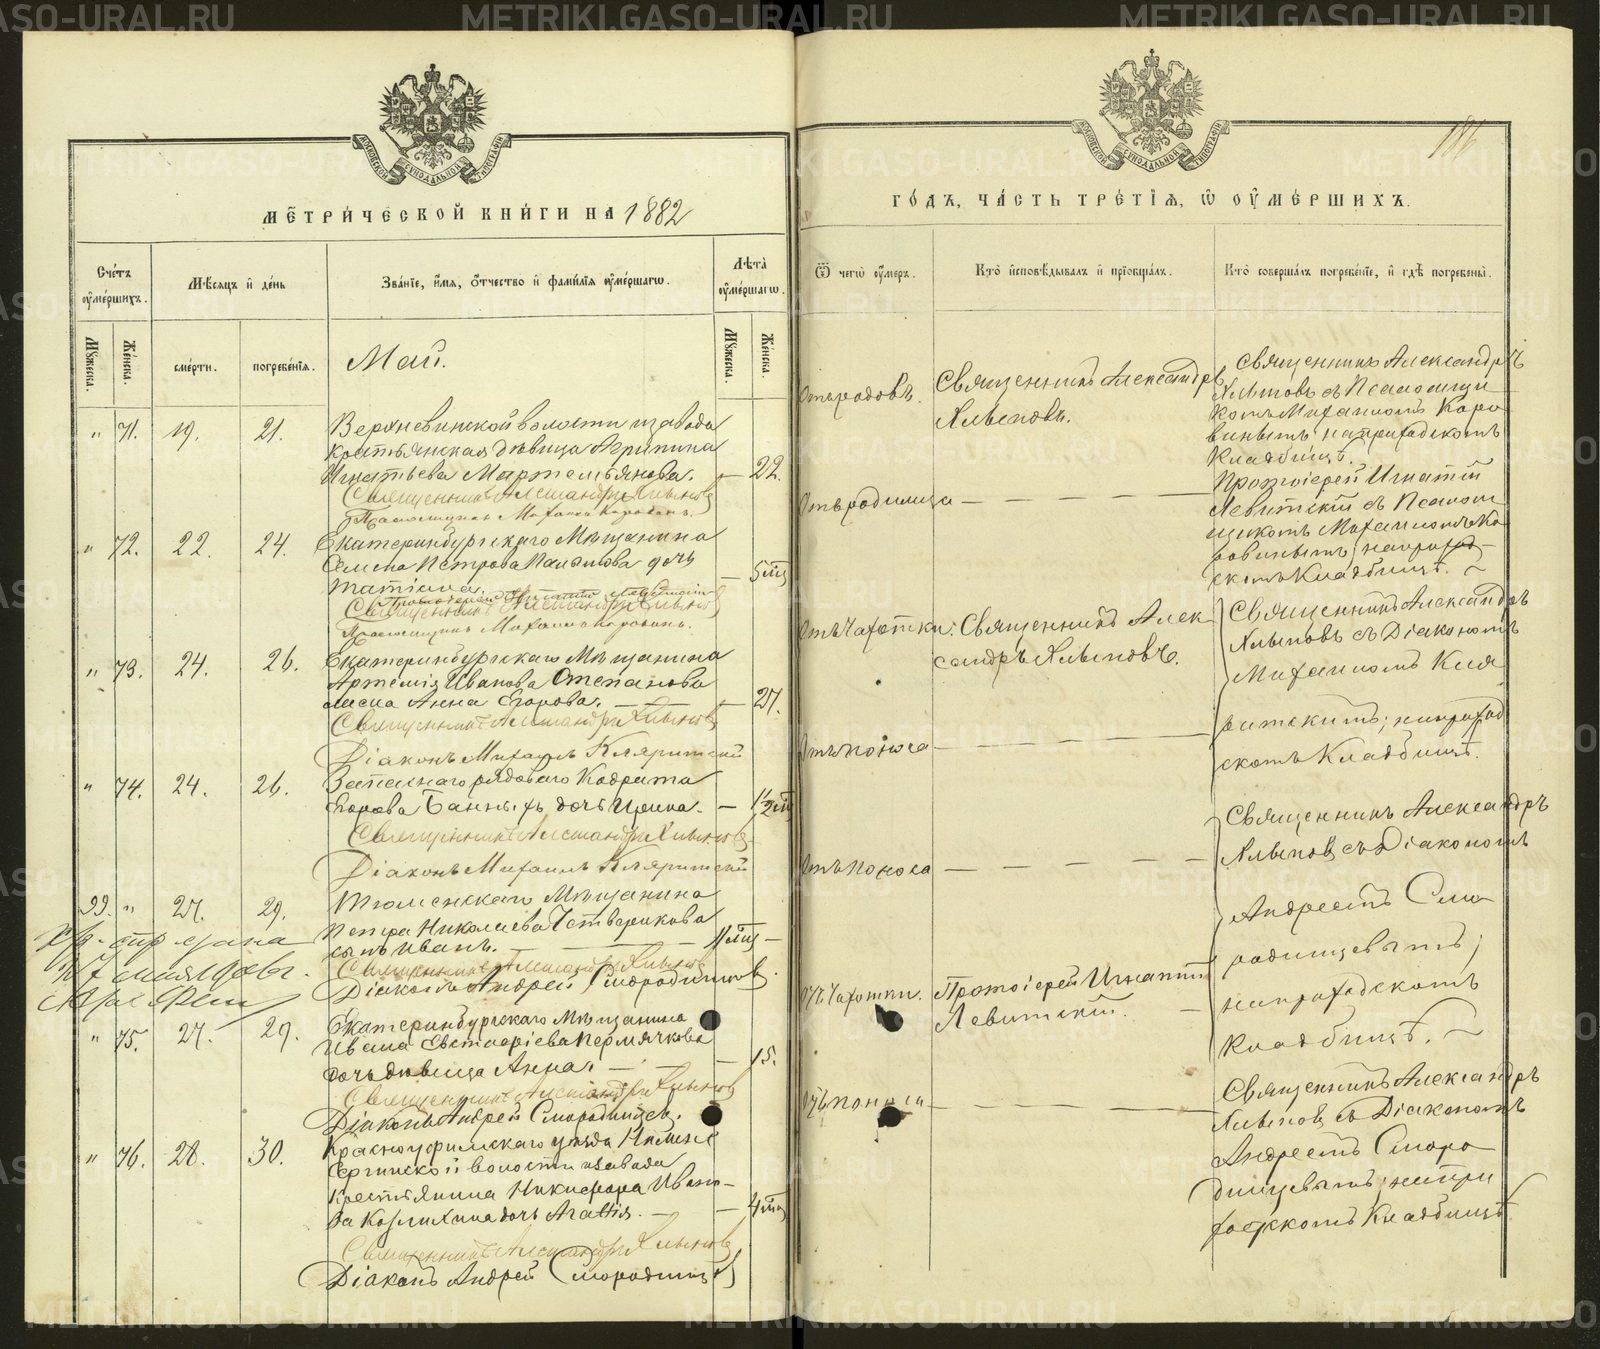 METRIKI.GASO-URAL.RU
МОСКОВСКОЙ СѴНОДАЛЬНОЙ ТИПОГРАФІИ
МЕТРИЧЕСКОЙ КНИГИ НА 1882
Счетъ умершихъ.
Мѣсяцъ и день
Званіе, имя, отчество и фамилія умершагѡ.
Лѣта умершагѡ.
Мужеска.
Женска.
смерти.
погребенія.
Май.
Мужеска.
Женска.
" 71. 19. 21. Верхневинской волости и завода
крестьянская дѣвица Агрипина
Игнатьева Мартемьянова. — 22.
Священникъ Александръ Хлыновъ
Псаломщикъ Михаилъ Коровинъ.
" 72. 22. 24. Екатеринбургскаго Мѣщанина
Семена Петрова дочь
Татіана. — 5 мѣс
Протоіерей Игнатій Левитскій
Священникъ Александръ Хлыновъ
Псаломщикъ Михаилъ Коровинъ.
" 73. 24. 26. Екатеринбургскаго Мѣщанина
Артемія Иванова Степанова
жена Анна Егорова. — 27.
Священникъ Александръ Хлыновъ
Діаконъ Михаилъ
" 74. 24. 26. Запаснаго рядоваго Кодрата
Егорова Банныхъ дочь Ирина. — 1 1/2 мѣс
Священникъ Александръ Хлыновъ
Діаконъ Михаилъ
99. " 27. 29. Тюменскаго Мѣщанина
Петра Николаева Четверикова
сынъ Иванъ. — 11 мѣс —
Священникъ Александръ Хлыновъ
Діаконъ Андрей Смородинцевъ.
" 75. 27. 29. Екатеринбургскаго Мѣщанина
Ивана Евстафіева Пермячкова
дочь дѣвица Анна. — 15.
Священникъ Александръ Хлыновъ
Діаконъ Андрей Смородинцевъ.
" 76. 28. 30. Красноуфимскаго уѣзда Нижне
Сергинской волости и завода
крестьянина Никифора Ивано-
ва дочь Агаѳія. — 4 мѣс
Священникъ Александръ Хлыновъ
Діаконъ Андрей Смородинцевъ
186
ГОДЪ, ЧАСТЬ ТРЕТІЯ, Ѡ УМЕРШИХЪ.
Ѿ чегѡ умеръ.
Кто исповѣдывалъ и пріобщалъ.
Кто совершалъ погребеніе, и гдѣ погребены.
Отъ родовъ.
Священникъ Александръ
Хлыновъ.
Священникъ Александръ
Хлыновъ съ Псаломщи
комъ Михаиломъ Коро
винымъ; на приходскомъ
Кладбищѣ.
Отъ родимца —
Протоіерей Игнатій
Левитскій съ Псалом
щикомъ Михаиломъ Ко
ровинымъ; на приход-
скомъ Кладбищѣ.
Отъ Чахотки.
Священникъ Алек
сандръ Хлыновъ.
Священникъ Александръ
Хлыновъ съ Діакономъ
Михаиломъ Кля
ритскимъ; на приход
скомъ Кладбищѣ.
Отъ поноса —
Священникъ Александръ
Хлыновъ съ Діакономъ
Отъ поноса —
Андреемъ Смо
родинцевымъ;
на приходскомъ
Кладбищѣ.
Отъ Чахотки.
Протоіерей Игнатій
Левитскій. —
Отъ поноса —
Священникъ Александръ
Хлыновъ съ Діакономъ
Андреемъ Сморо
динцевымъ; на при
ходскомъ Кладбищѣ